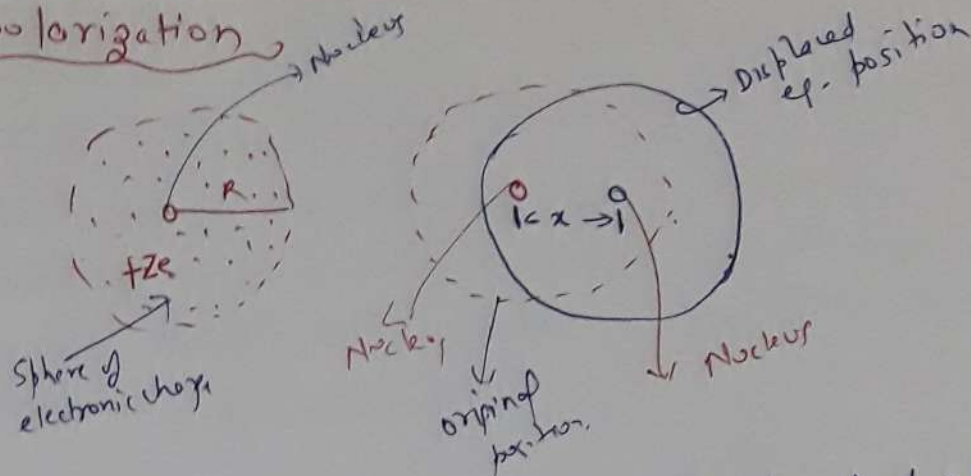 olarization
Nucleus
R
+Ze
Sphere of
electronic charge
Displaced
position
|< x →|
Nucleus
Nucleus
original
position.